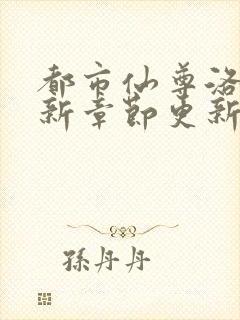 都市仙尊洛
新章節更新
孫丹丹